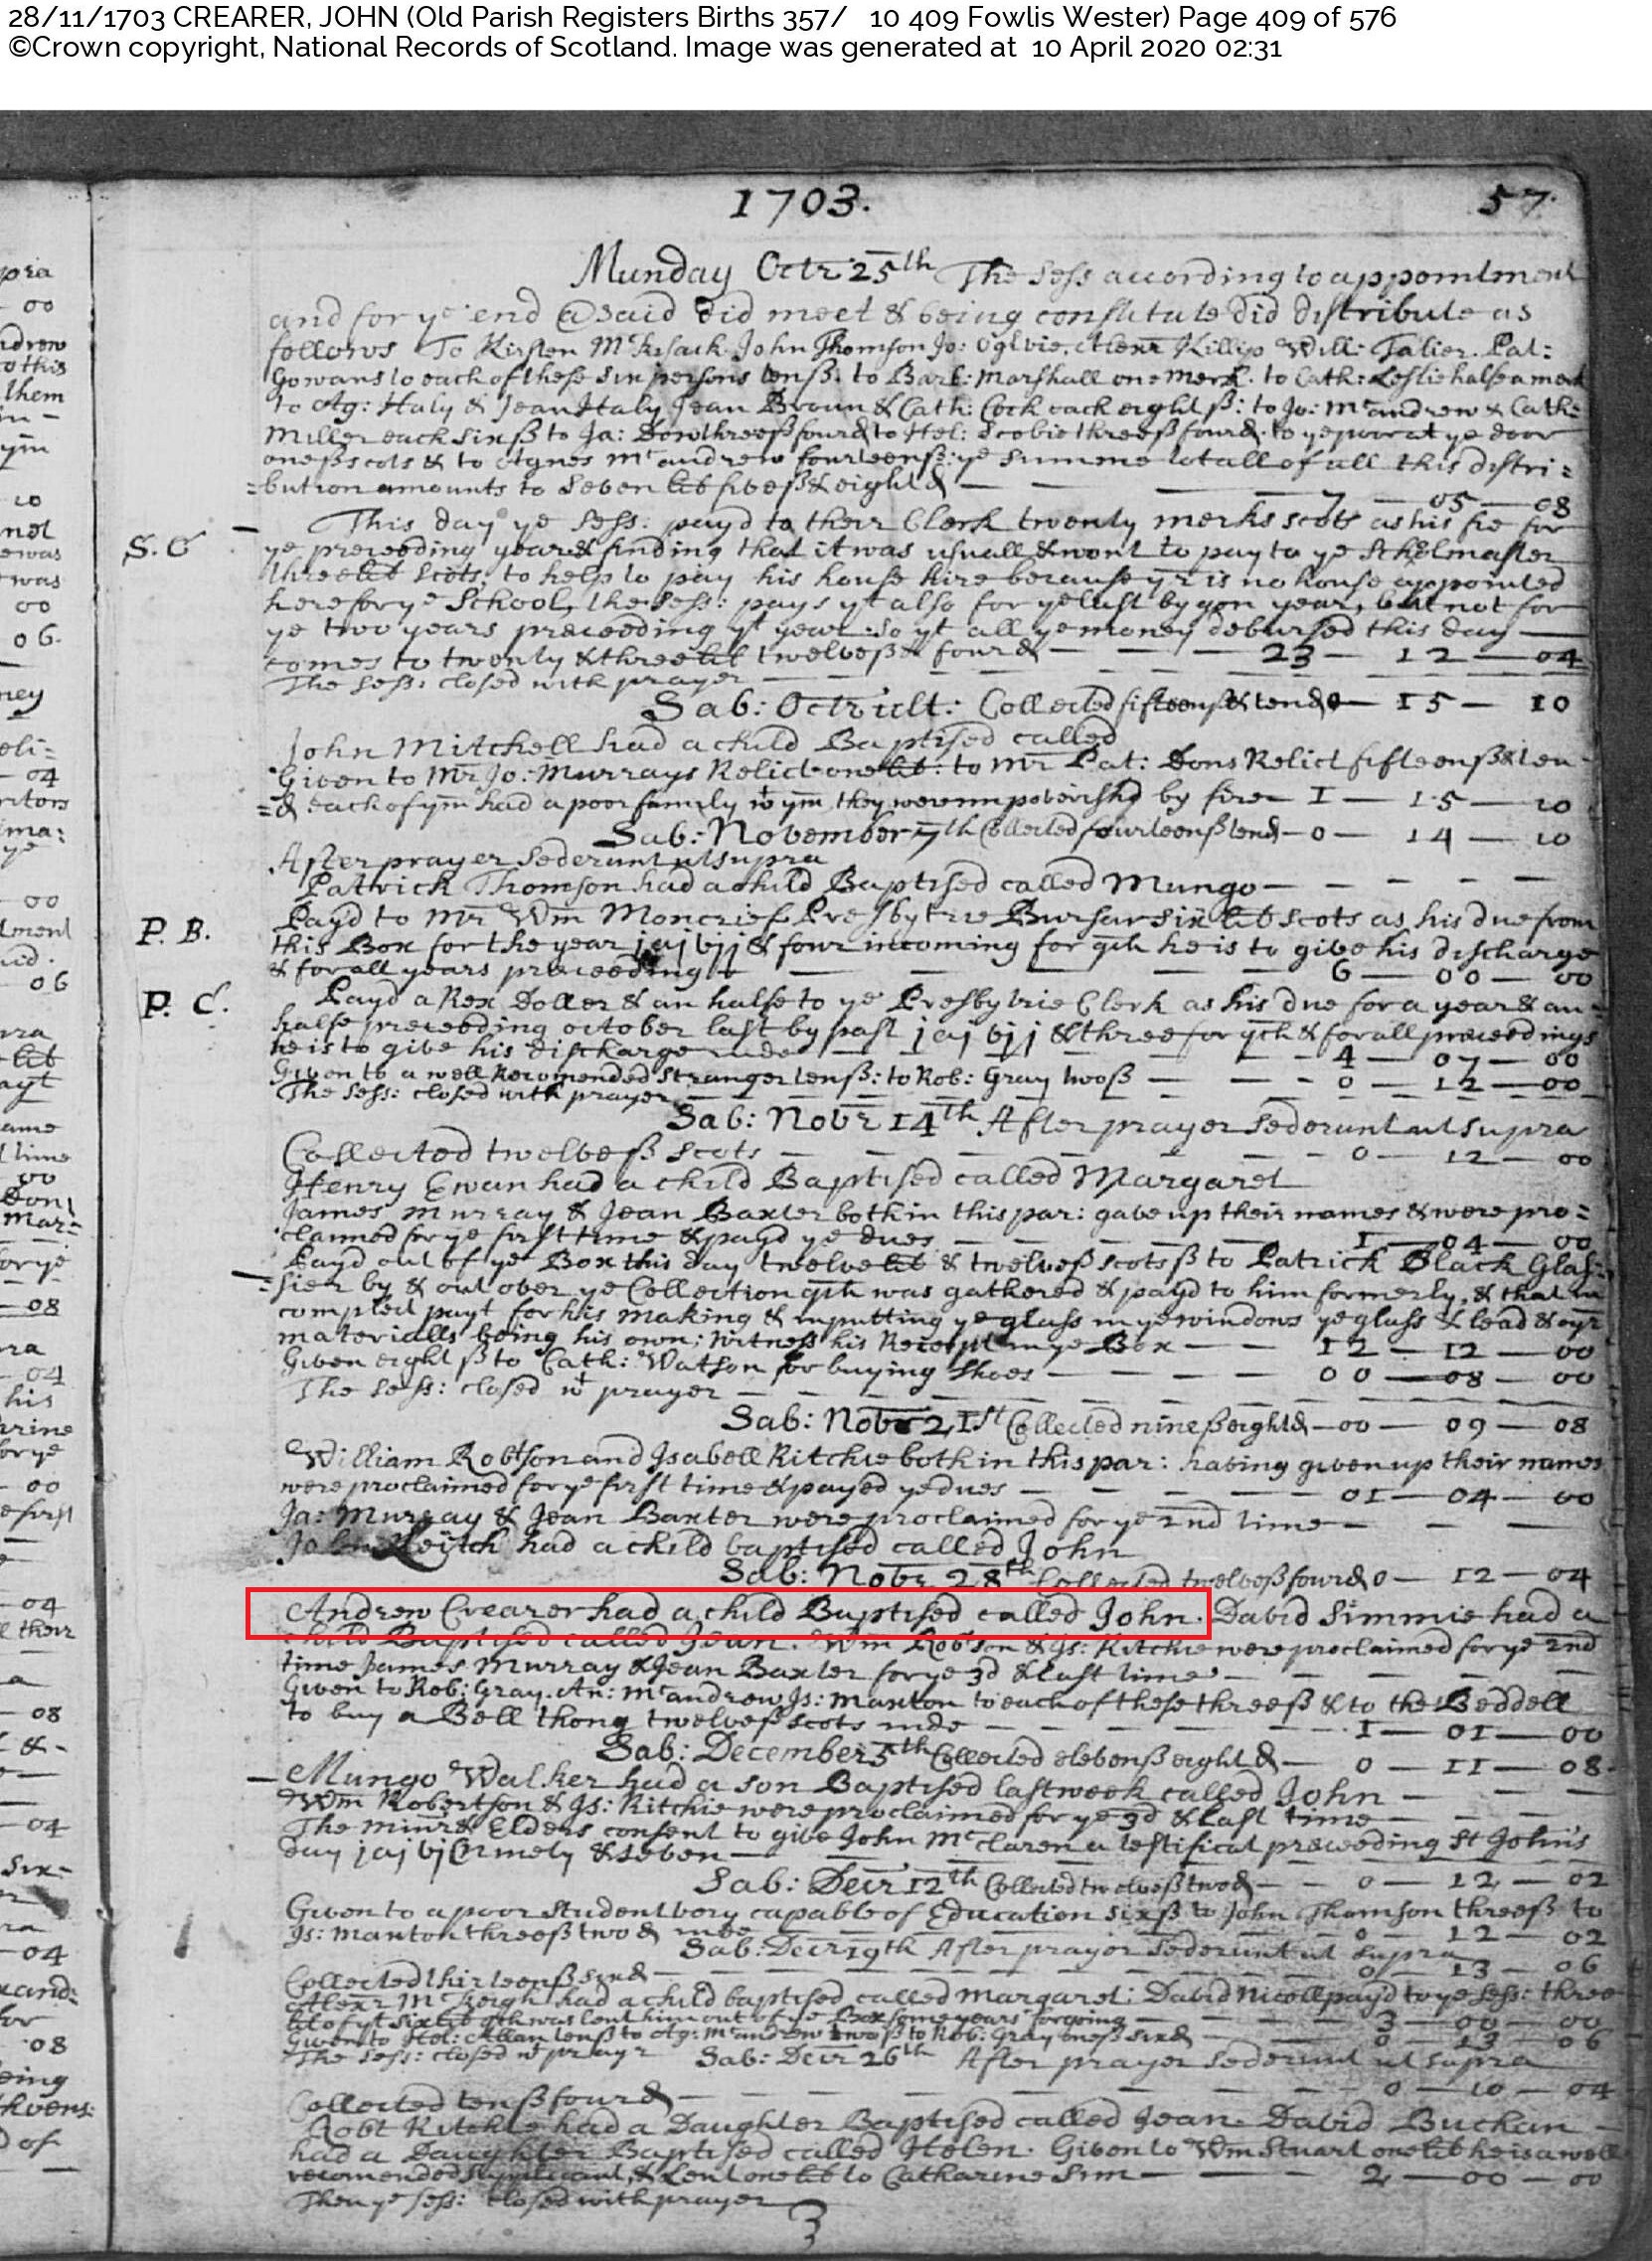 28/11/1703 CREARER, JOHN (Old Parish Registers Births 357/ 10 409 Fowlis Wester) Page 409 of 576
©Crown copyright, National Records of Scotland. Image was generated at 10 April 2020 02:31
1703. 57.
Munday Octr 25th The Sess according to appointment
and for ye end @said did meet & being constitute did distribute as
follows To Kirsten John Thomson Jo: Ogilvie, Alexr Killip Will: Talier. Pat:
Gowans to each of these six persons tenß. to Barb: Marshall one Merk. to Cath: Leslie halfe a merk
to Ag: Haly & Jean Haly Jean Broun & Cath: Cock each eight ß: to Jo: Mcandrew & Cath:
Miller each six ß to Ja: Don threeß four d to Hel: Scobie threeß four d. to ye poor at ye door
oneß scots & to Agnes Mcandrew fourteenß: ye summe totall of all this distri=
=bution amounts to Seven lib fiveß & eight d — — — 7 — 05 — 08
This day ye Sess: payd to their Clerk twenty merks scots as his fie for
S. C ye preceeding year & finding that it was usuall & wont to pay to ye Schoolmaster
three lib Scots: to help to pay his house hire because yr is no house appointed
here for ye School, the Sess: pays yt also for ye last bygon year, but not for
ye two years preceeding yt year. So yt all ye money debursed this day —
comes to twenty & three lib twelveß & four d — — — 23 — 12 — 04
The Sess: closed with prayer — — —
Sab: Octr ult: Collected fifteenß & ten d 0 — 15 — 10
John Mitchell had a child Baptised called
Given to Mr Jo: Murrays Relict one lib: to Mr Pat: Dons Relict fifteenß & ten
=d each of ym had a poor family wt ym they were impoverishd by fire — 1 — 15 — 10
Sab: November 7th Collected fourteenß ten d — 0 — 14 — 10
After prayer Sederunt ut supra
Patrick Thomson had a child Baptised called Mungo — — — — —
P. B. Payd to Mr Wm Moncrief Presbytrie Bursar six lib scots as his due from
this Box for the year jaj vij & four incoming for qch he is to give his discharge
& for all years preceeding it — — — — — 6 — 00 — 00
P. C. Payd a Rex Doller & an halfe to ye Presbytrie Clerk as his due for a year & an
halfe preceeding october last by past jaj vij & three for qch & for all preceedings
he is to give his discharge inde — — — 4 — 07 — 00
Given to a well Recomended Stranger tenß: to Rob: Gray twoß — — — 0 — 12 — 00
The Sess: closed with prayer
Sab: Novr 14th After prayer Sederunt ut supra
Collected twelveß scots — — — — — 0 — 12 — 00
Henry Ewan had a child Baptised called Margaret
James Murray & Jean Baxter both in this par: gave up their names & were pro=
claimed for ye first time & payd ye dues — — — 1 — 04 — 00
Payd out of ye Box this day twelve lib & twelveß scots to Patrick Black Glas=
=sier by & out over ye Collection qch was gathered & payd to him formerly, & that in
compleit payt for his making & inputting ye glass in ye windows ye glass & lead & oyr
materialls being his own; witness his Receipt in ye Box — — 12 — 12 — 00
Given eight ß to Cath: Watson for buying Shoes — — — — 00 — 08 — 00
The Sess: closed wt prayer —
Sab: Novr 21st Collected nineß eight d — 00 — 09 — 08
William Robtson and Isabell Ritchie both in this par: having given up their names
were proclaimed for ye first time & payed ye dues — — — — 01 — 04 — 00
Ja: Murray & Jean Baxter were proclaimed for ye 2nd time — — —
John Keitch had a child baptised called John
Sab: Novr 28th Collected twelveß four d 0 — 12 — 04
Andrew Crearer had a child Baptised called John. David Simmie had a
child Baptised called Jean. Wm Robson & Is: Ritchie were proclaimed for ye 2nd
time James Murray & Jean Baxter for ye 3d & last time — — — —
Given to Rob: Gray. An: Mcandrew Is: Manton to each of these threeß & to the Beddell
to buy a Bell thong twelveß scots inde — — — — 1 — 01 — 00
Sab: December 5th Collected elevenß eight d — 0 — 11 — 08
Mungo Walker had a son Baptised last week called John — — —
Wm Robertson & Is: Ritchie were proclaimed for ye 3d & last time — — —
The Minr & Elders consent to give John McClaren a testificat preceeding St John's
day jaj vj & seven —
Sab: Decr 12th Collected twelveß two d — — 0 — 12 — 02
Given to a poor student very capable of Education sixß to John Thomson threeß to
Is: Manton threeß two d inde — — — 0 — 12 — 02
Sab: Decr 19th After prayer Sederunt ut supra
Collected thirteenß six d — — — — 0 — 13 — 06
Alexr had a child baptised called Margaret: David Nicoll payd to ye sess: three
lib of yt six lib qch was lent him out of ye Box some years forgoing — — 3 — 00 — 00
Given to Hel: Allan tenß to Ag: Mcandrew twoß to Rob: Gray oneß six d — — 0 — 13 — 06
The Sess: closed wt prayr Sab: Decr 26th After prayer Sederunt ut supra
Collected tenß four d — — — — — 0 — 10 — 04
Robt Ritchie had a Daughter Baptised called Jean. David Buchan
had a Daughter Baptised called Helen. Given to Wm Stuart one lib he is a well
recomended supplicant, & Lent one lib to Catharine Sim — — — 2 — 00 — 00
Then ye sess: closed with prayer